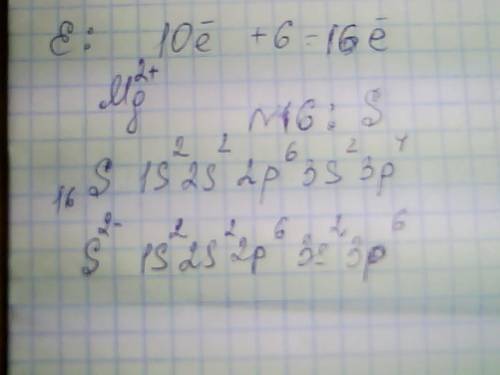 E: 10ē + 6 = 16ē
Mg²⁺
N16: S
₁₆S 1S² 2S² 2p⁶ 3S² 3p⁴
S²⁻ 1S² 2S² 2p⁶ 3S² 3p⁶